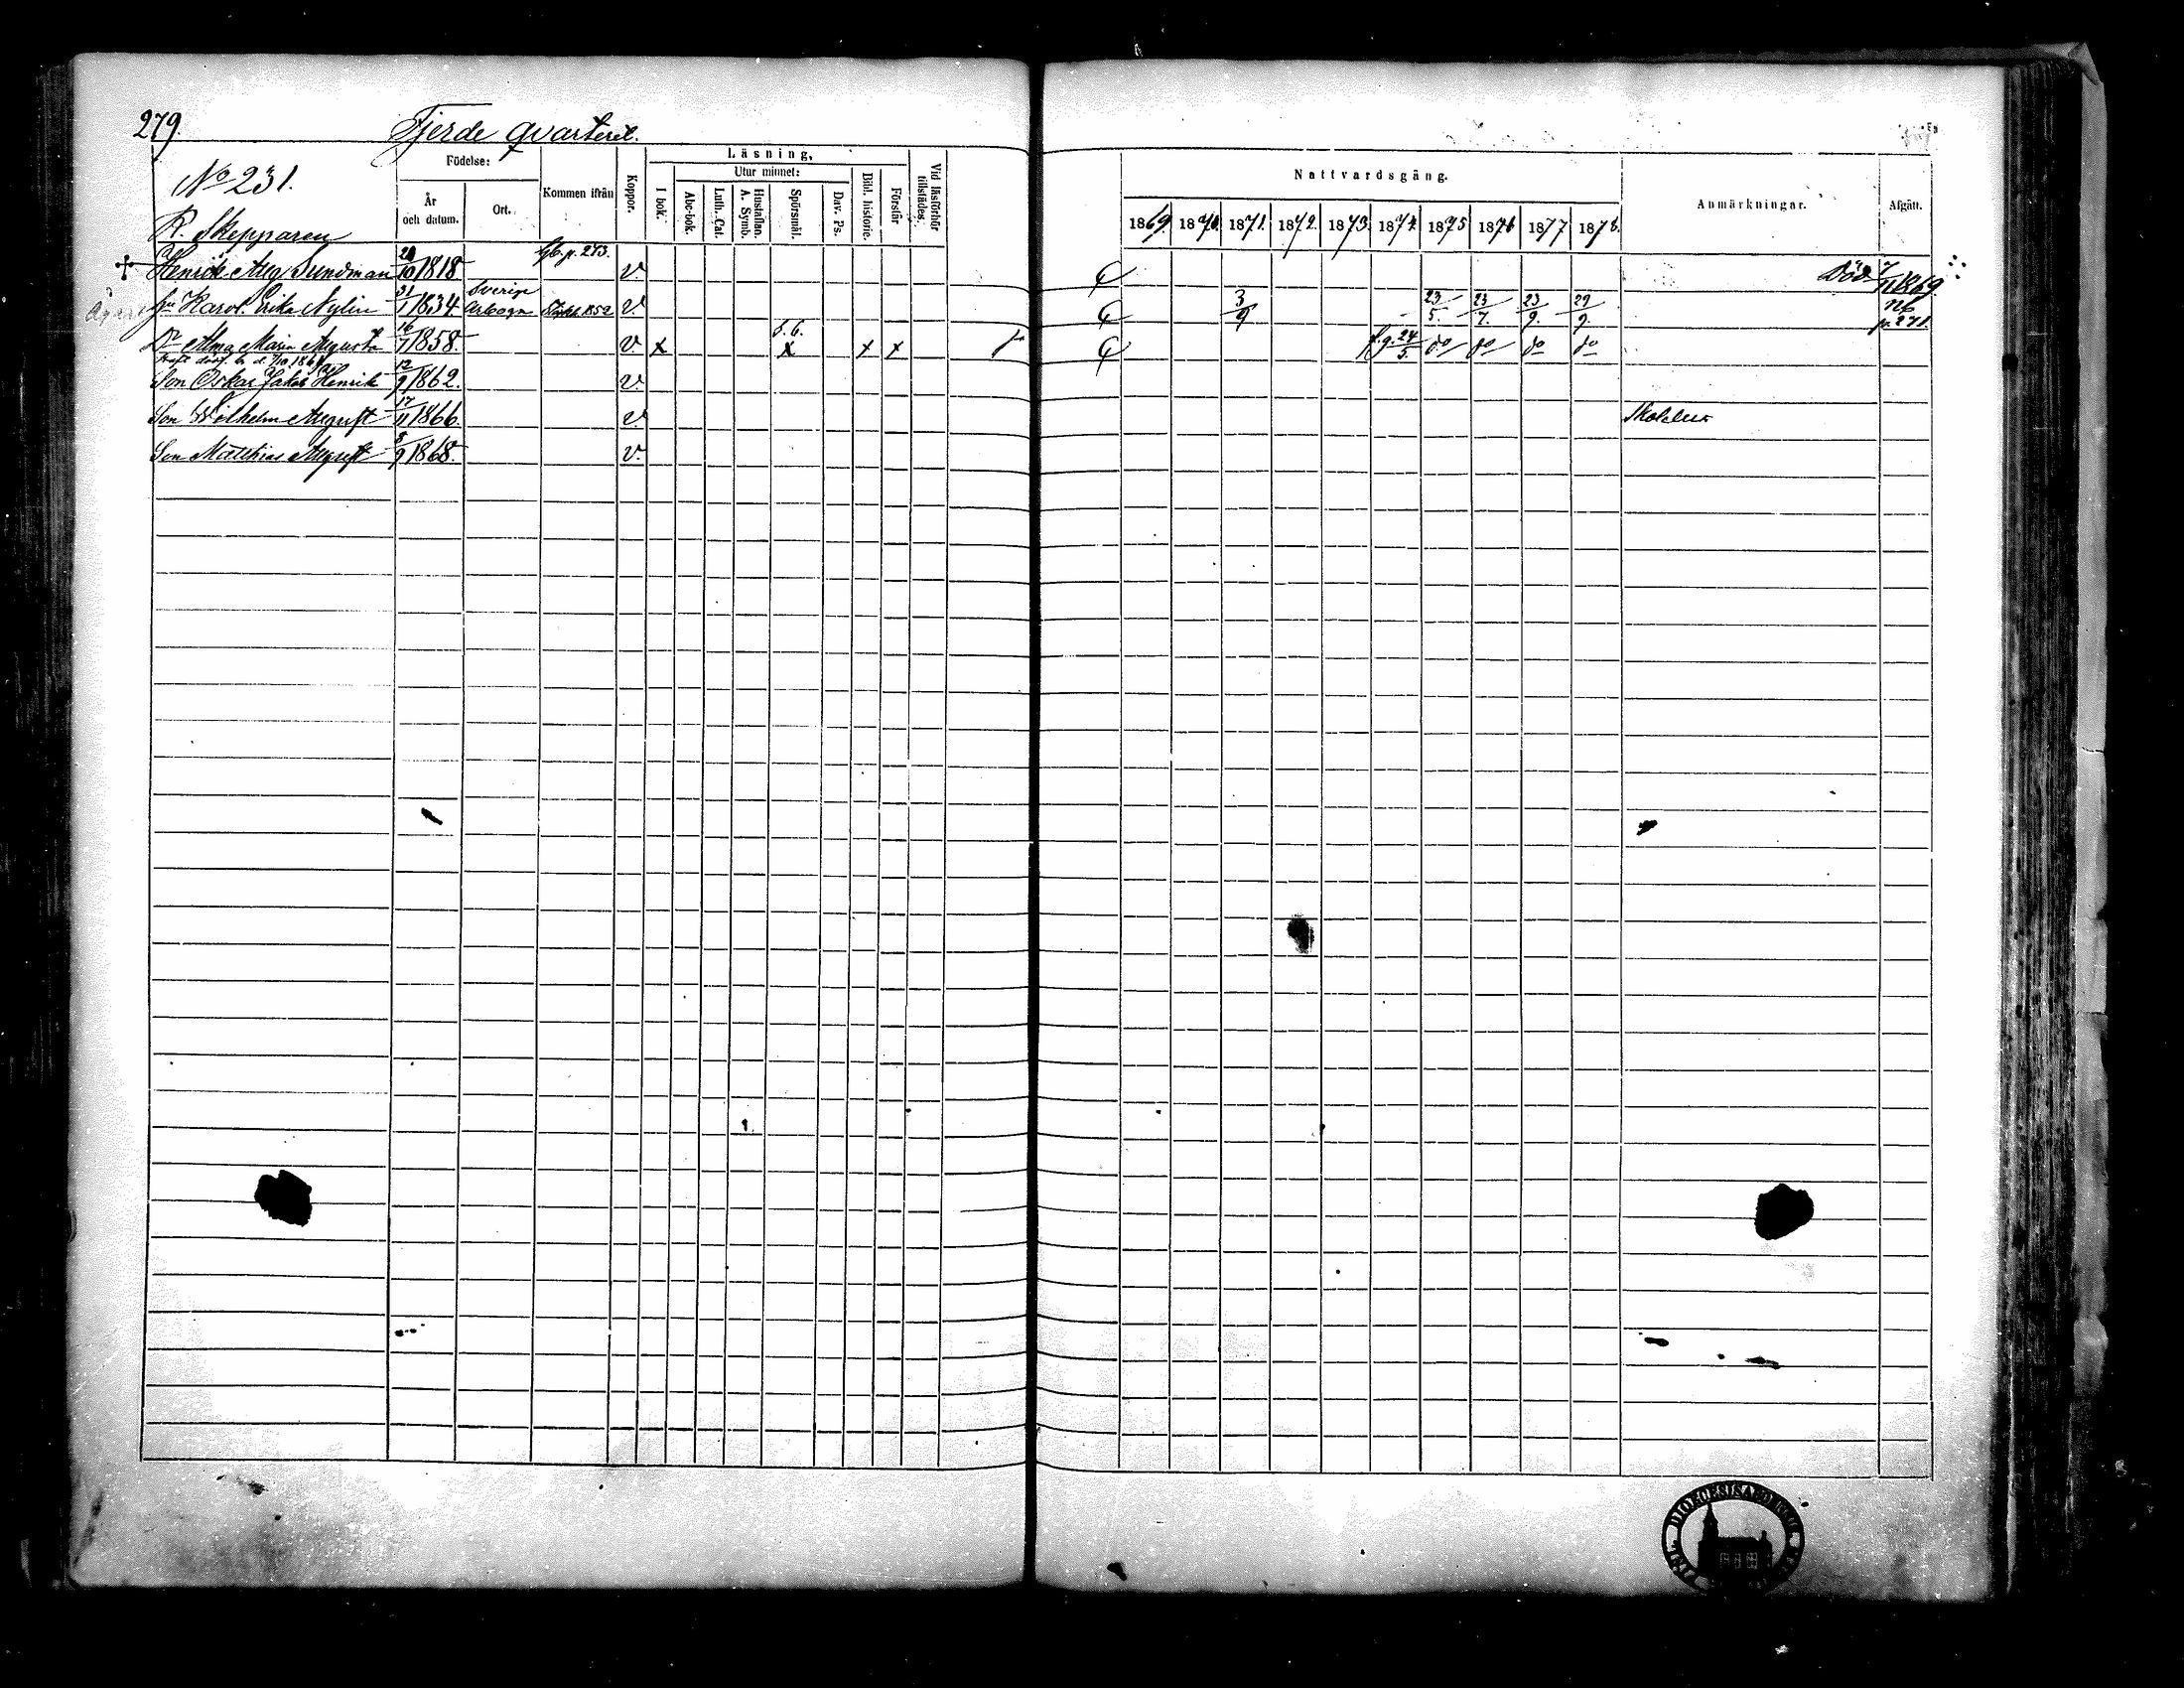 279.
Fjerde qvarteret.
No 231.
Födelse:
År och datum.
Ort.
Kommen ifrån
Koppor.
Läsning,
I bok.
Utur minnet:
Abc-bok.
Luth. Cat.
Hustaflan. A. Symb.
Spörsmål.
Dav. Ps.
Bibl. historie.
Förstår
Vid läsförhör tillstädes.
Nattvardsgång.
1869. 1870. 1871. 1872. 1873. 1874 1875 1876 1877 1878.
Anmärkningar.
Afgått.
R. Skepparen
Henrik Aug. Sundman 28/10 1818 p. 273. v. Död 7/11 1869.
Karol. Erika Nylin 31/1 1834. Sverige Arboga 1852 v. 3/9 23/5. 23/7. 23/9. 29/9. p. 271.
Dr Alma Maria Augusta 16/7 1858. v. x 6.6. x x x f.g. 24/5. do do do do
Son Oskar Jakob Henrik 12/9 1862. v.
Son Wilhelm August 17/11 1866. v.
Son Matthias August 8/9 1868. v.